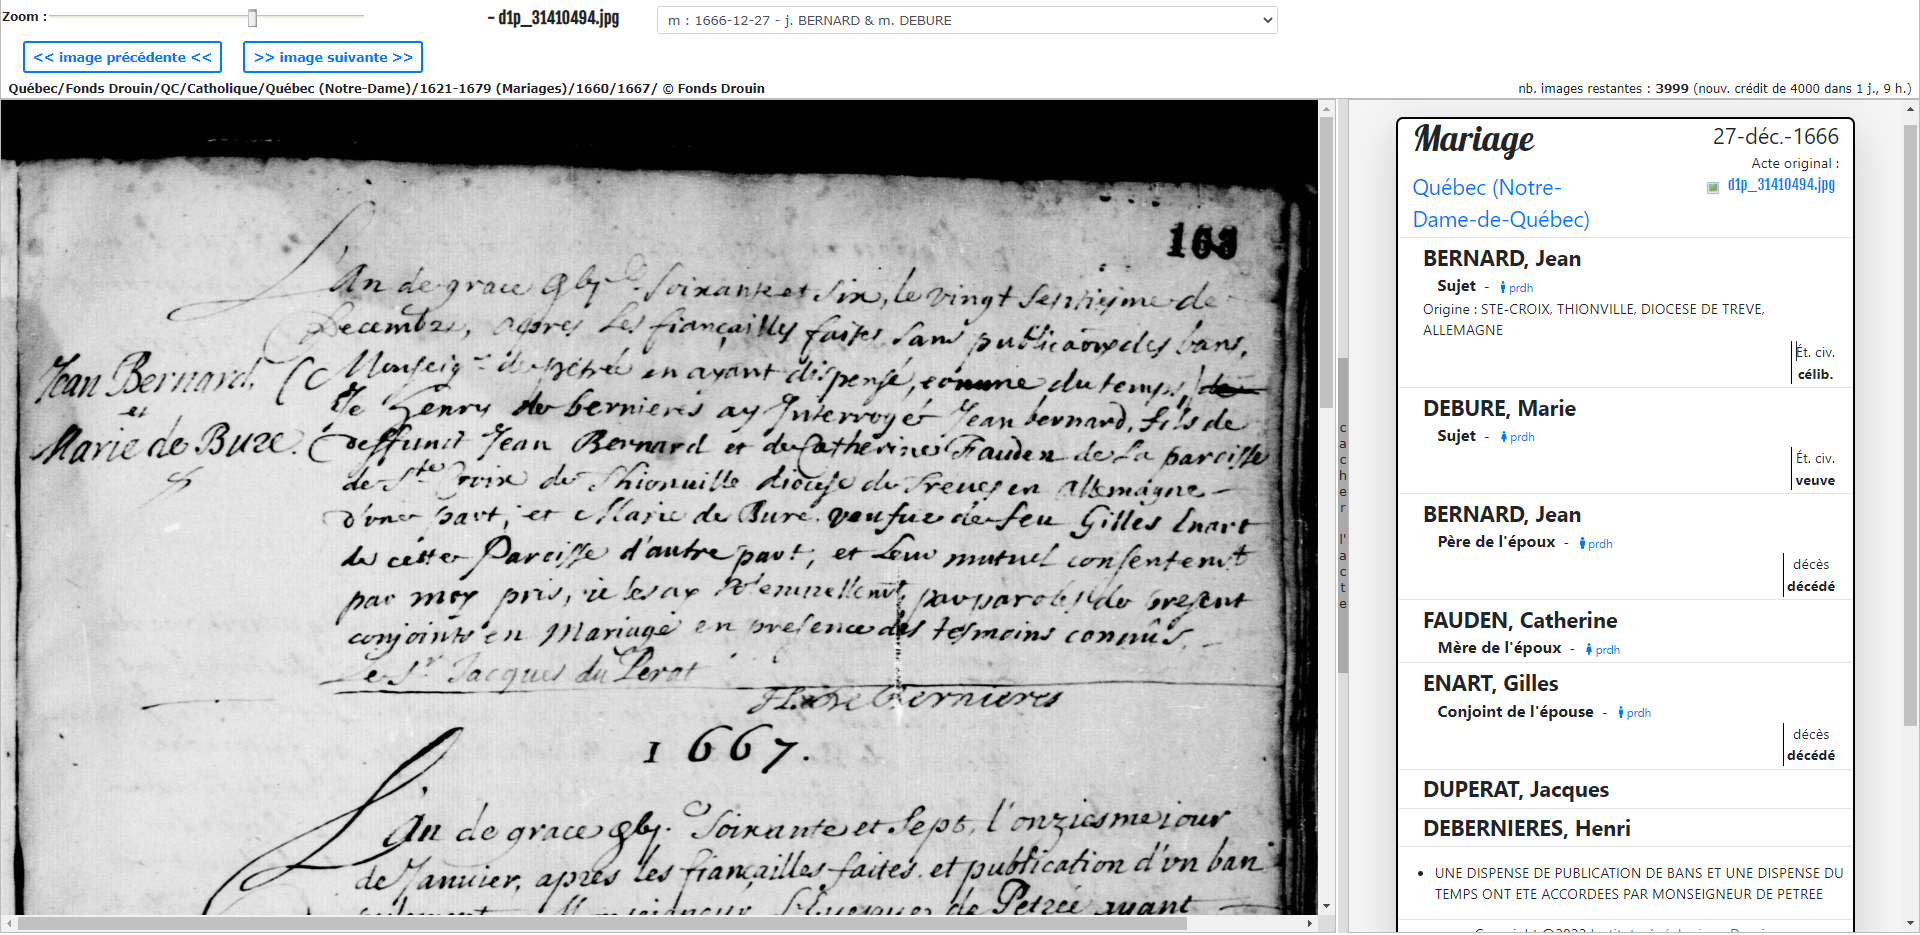 Zoom :
- d1p_31410494.jpg
m : 1666-12-27 - j. BERNARD & m. DEBURE
<< image précédente <<
>> image suivante >>
Québec/Fonds Drouin/QC/Catholique/Québec (Notre-Dame)/1621-1679 (Mariages)/1660/1667/ © Fonds Drouin
nb. images restantes : 3999 (nouv. crédit de 4000 dans 1 j., 9 h.)
163
L'An de grace gbj.c Soixante et six, le vingt septiesme de
Decembre, apres les fiançailles faites sans publication des bans,
Monseigr de petrée en ayant dispensé, comme du temps,
Je Henry de bernieres ay Interrogé Jean bernard, fils de
deffunct Jean Bernard et de Catherine Fauden de la paroisse
de Ste Croix de Thionuille diocese de Treues en Allemagne
d'vne part, et Marie de Bure veufue de feu Gilles Enart
de cette Paroisse d'autre part, et leur mutuel consentemt
par moy pris, ie les ay solemnellemt par paroles de present
conjoints en Mariage en presence des tesmoins connûs,
Le Sr Jacques du Perat
H. de Bernieres
Jean Bernard,
et
Marie de Bure.
1667.
L'An de grace gbj.c Soixante et sept, l'onziesme iour
de Januier, apres les fiançailles faites, et publication d'vn ban
seulement Monseigneur l'Euesque de Petrée ayant
cacher l'acte
Mariage
27-déc.-1666
Acte original :
d1p_31410494.jpg
Québec (Notre-
Dame-de-Québec)
BERNARD, Jean
Sujet - prdh
Origine : STE-CROIX, THIONVILLE, DIOCESE DE TREVE,
ALLEMAGNE
Ét. civ.
célib.
DEBURE, Marie
Sujet - prdh
Ét. civ.
veuve
BERNARD, Jean
Père de l'époux - prdh
décès
décédé
FAUDEN, Catherine
Mère de l'époux - prdh
ENART, Gilles
Conjoint de l'épouse - prdh
décès
décédé
DUPERAT, Jacques
DEBERNIERES, Henri
• UNE DISPENSE DE PUBLICATION DE BANS ET UNE DISPENSE DU
TEMPS ONT ETE ACCORDEES PAR MONSEIGNEUR DE PETREE